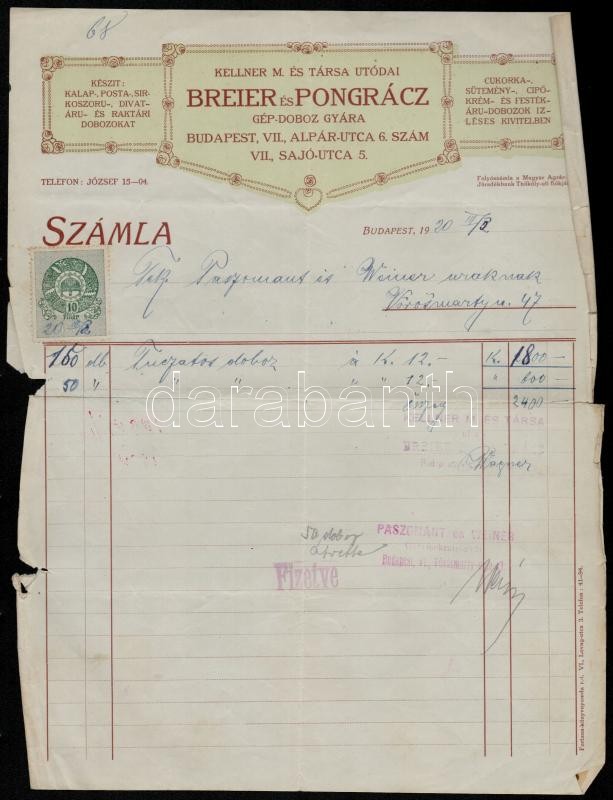 68
KELLNER M. ÉS TÁRSA UTÓDAI
BREIER ÉS PONGRÁCZ
GÉP-DOBOZ GYÁRA
BUDAPEST, VII, ALPÁR-UTCA 6. SZÁM
VII, SAJÓ-UTCA 5.
KÉSZIT:
KALAP-, POSTA-, SIR-
KOSZORU-, DIVAT-
ÁRU- ÉS RAKTÁRI
DOBOZOKAT
CUKORKA-,
SÜTEMÉNY-, CIPŐ-
KRÉM- ÉS FESTÉK-
ÁRU-DOBOZOK IZ-
LÉSES KIVITELBEN
TELEFON: JÓZSEF 15—04.
Folyószámla a Magyar Agrár-
Járadékbank Thököly-uti fiókjá
SZÁMLA
BUDAPEST, 1920 III/8
10
20 III/8
Tek. Paszomant és Weiner uraknak
Vörösmarty u. 47
150 db Tuczatos doboz à K. 12.— K. 1800—
50 " " " " " 12.— " 600—
2400—
KELLNER M. ÉS TÁRSA
BREIER
Wagner
50 doboz
PASZOMANT és WEINER
BUDAPEST, VI.,
Fizetve
darabanth
Fortuna-könyvnyomda r.-t. VI., Lovag-utca 3. Telefon: 41-84.